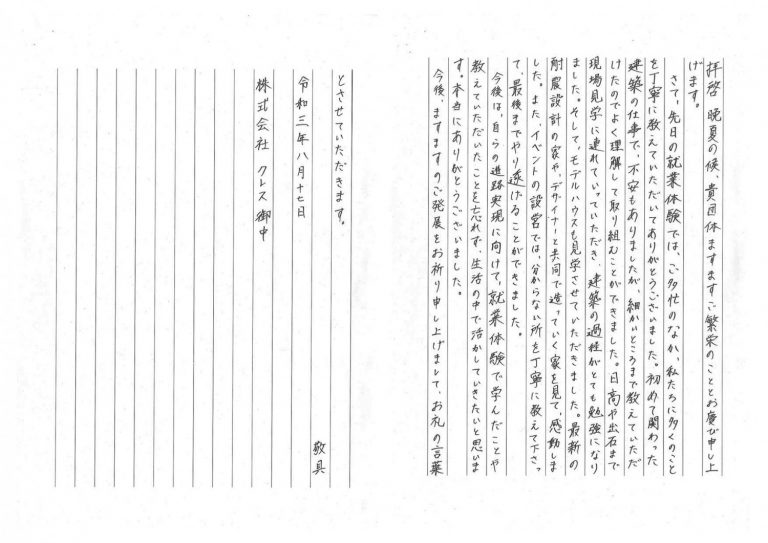 拝啓 晩夏の候、貴団体ますますご繁栄のこととお慶び申し上
げます。
さて、先日の就業体験では、ご多忙のなか、私たちに多くのこと
を丁寧に教えていただいてありがとうございました。初めて関わった
建築の仕事で、不安もありましたが、細かいところまで教えていただ
けたのでよく理解して取り組むことができました。日高や出石まで
現場見学に連れていっていただき、建築の過程がとても勉強になり
ました。そして、モデルハウスも見学させていただきました。最新の
耐震設計の家や、デザイナーと共同で造っていく家を見て、感動しま
した。また、イベントの設営では、分からない所を丁寧に教えて下さっ
て、最後までやり遂げることができました。
今後は、自らの進路実現に向けて、就業体験で学んだことや
教えていただいたことを忘れず、生活の中で活かしていきたいと思いま
す。本当にありがとうございました。
今後、ますますのご発展をお祈り申し上げまして、お礼の言葉
とさせていただきます。
敬具
令和三年八月十七日
株式会社 クレス御中